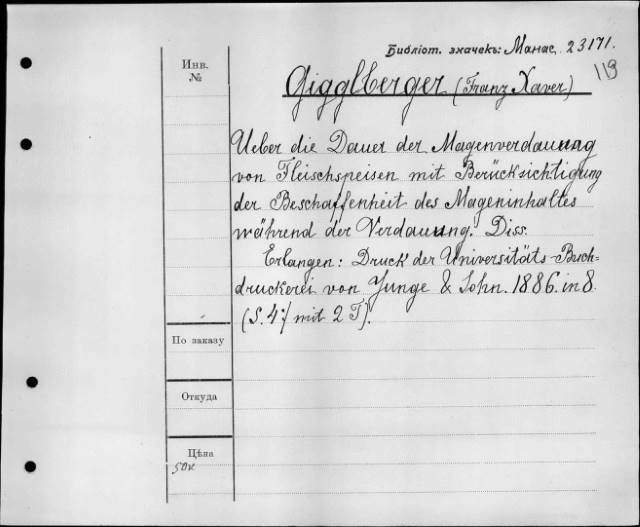 Библіот. значекъ: Манас. 23171.
119
Инв.
№
Gigglberger (Franz Xaver)
Ueber die Dauer der Magenverdauung
von Fleischspeisen mit Berücksichtigung
der Beschaffenheit des Mageninhaltes
während der Verdauung. Diss.
Erlangen: Druck der Universitäts-Buch-
druckerei von Junge & Sohn. 1886. in 8.
(S. mit 2 T).
По заказу
Откуда
Цѣна
50к